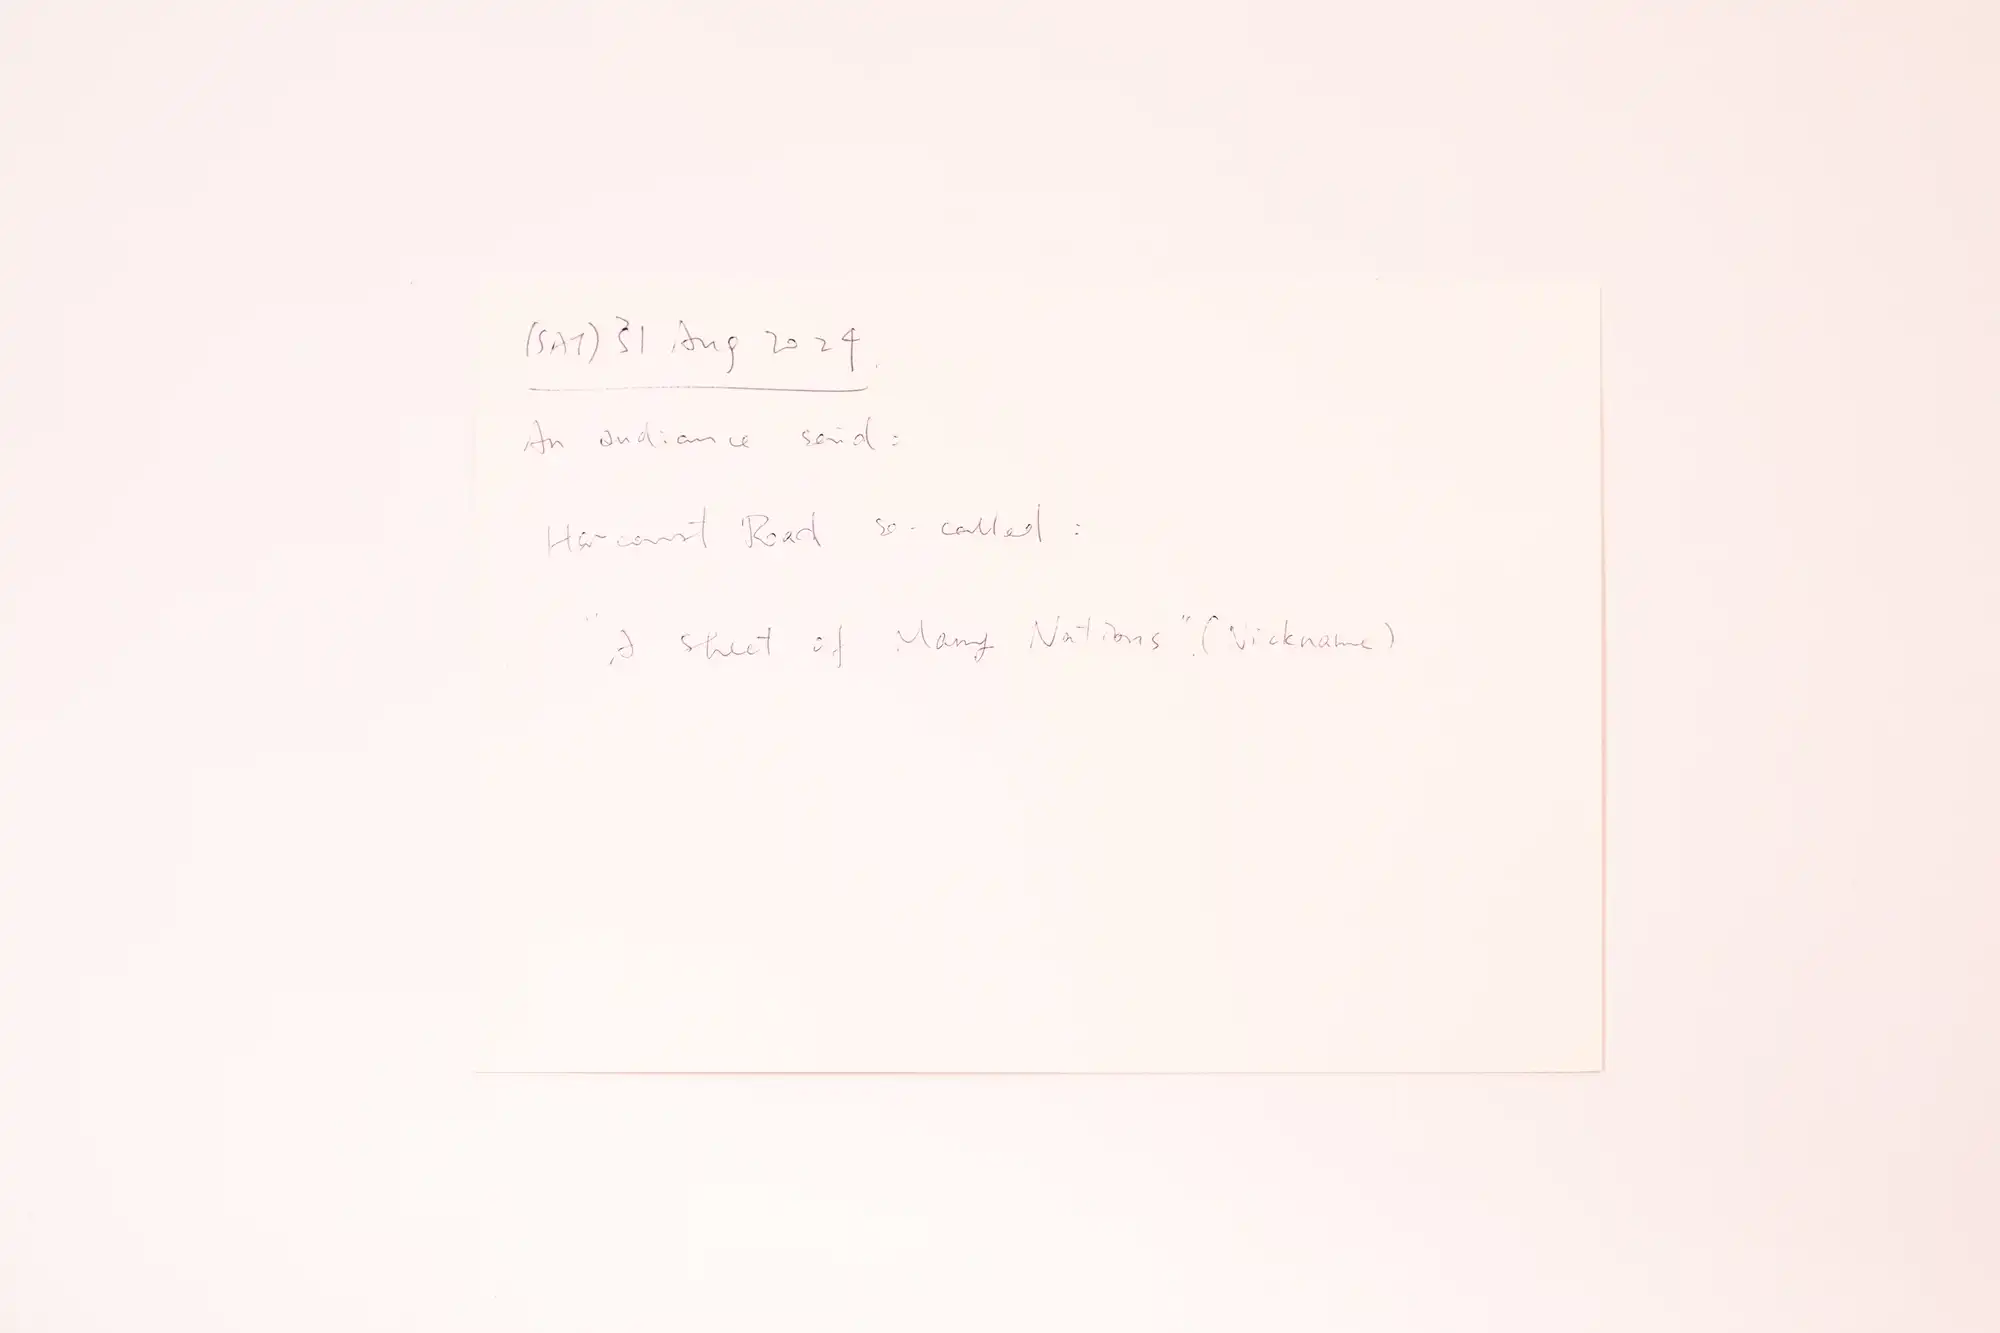 (SAT) 31 Aug 2024.
An audiance said:
Harcourt Road so-called:
"A Street of Many Nations". (Nickname)